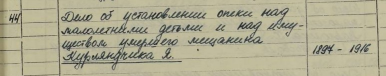 44 Дело об установлении опеки над
малолетними детьми и над иму-
ществом умершего мещанина
Курляндчика Я. 1897 - 1916